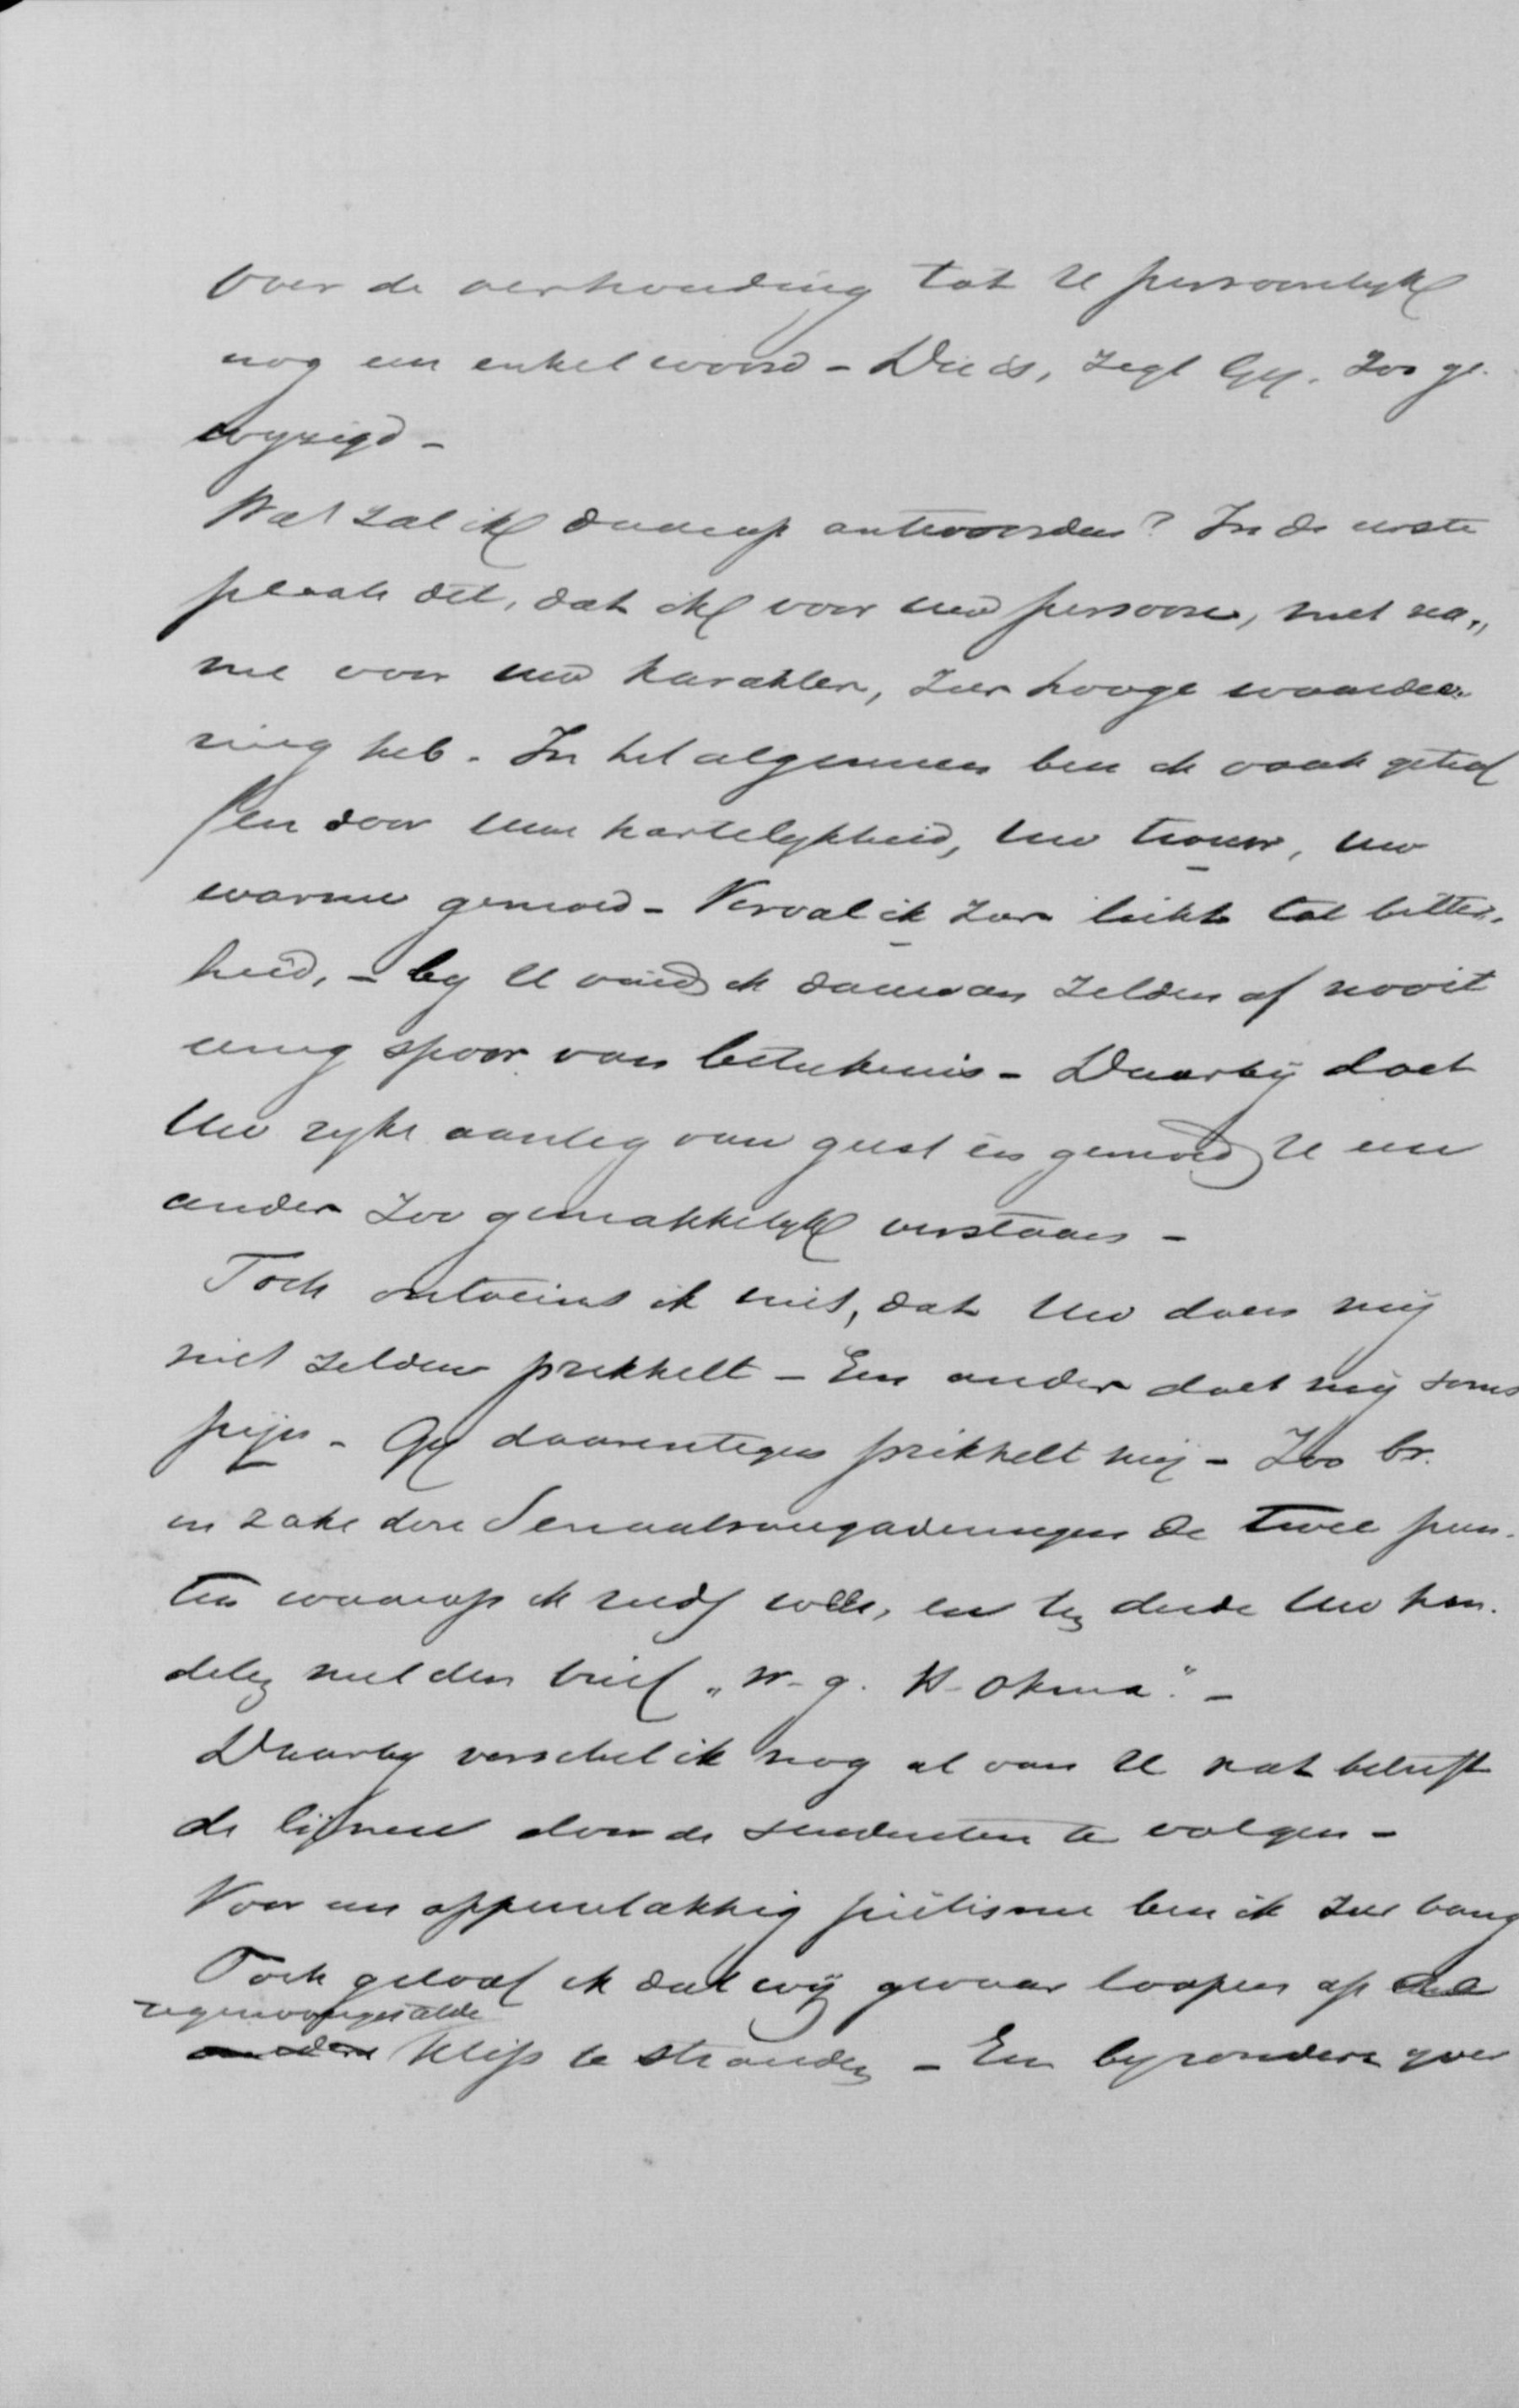 Over de verhouding tot U persoonlijk
nog een enkel woord – Die is, zegt Gij, zoo ge-
wyzigd –
Wat zal ik daarop antwoorden? In de eerste
plaats dit, dat ik voor uw persoon, met na„
me voor uw karakter, zeer hooge waardee„
ring heb. In het algemeen ben ik vaak getrof
fen door uwe hartelykheid, uw trouw, uw
warm gemoed – Verval ik zeer licht tot bitter„
heid, – by U vind ik daarvan zelden of nooit
eenig spoor van beteekenis – Daarbij doet
Uw ryke aanleg van geest en gemoed U een
ander zoo gemakkelyk verstaan –
Toch ontveins ik niet, dat Uw doen mij
niet zelden prikkelt – Een ander doet mij soms
pijn – Gij daarentegen prikkelt mij – Zoo bv.
in zake dere Senaatsvergaderingen de twee pun-
ten waarop ik reeds wees, en ten derde Uw han-
deling met den brief „w. g. K. Okma." –
Daarby verschil ik nog al van U wat betreft
de lijnen door de studenten te volgen –
Voor een oppervlakkig piëtisme ben ik zeer bang
Toch geloof ik dat wij gevaar loopen op de
tegenovergestelde
andere klip te stranden – Een byzondere gave